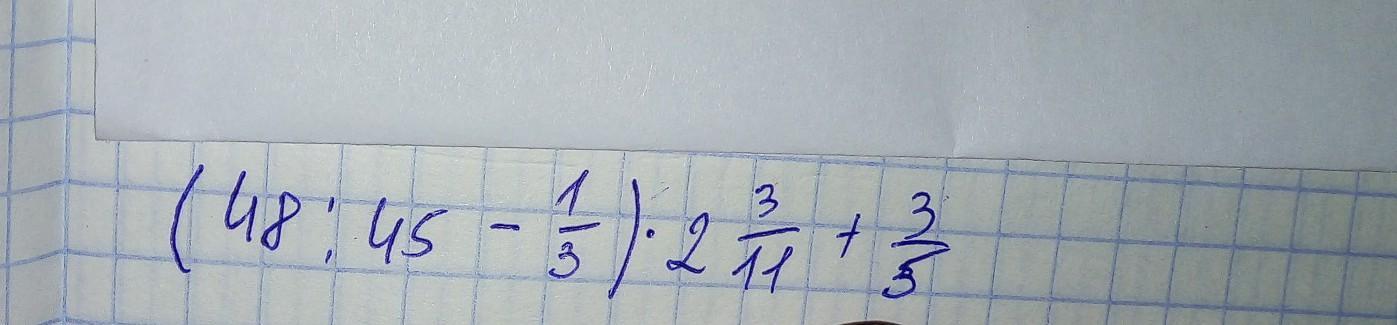 (48 : 45 - 1/3) · 2 3/11 + 3/5